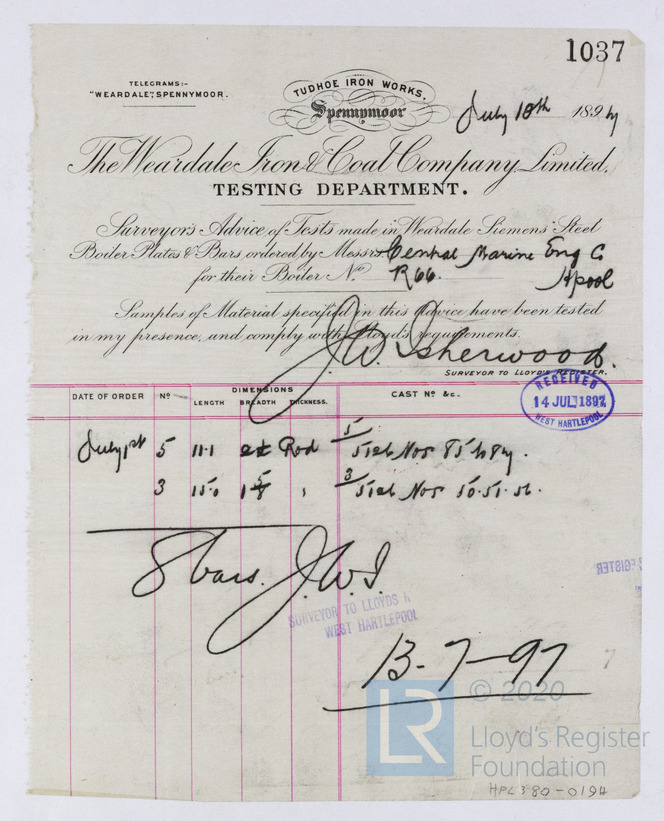 1037
TELEGRAMS:-
"WEARDALE", SPENNYMOOR.
TUDHOE IRON WORKS.
Spennymoor
July 10th 1897
The Weardale Iron & Coal Company, Limited,
TESTING DEPARTMENT.
Surveyor's Advice of Tests made in Weardale Siemens' Steel
Boiler Plates & Bars ordered by Messrs Central Marine Eng Co
for their Boiler No R66. Hpool
Samples of Material specified in this Advice have been tested
in my presence, and comply with Lloyd's requirements.
J.W. Isherwood.
SURVEYOR TO LLOYD'S REGISTER.
RECEIVED
14 JUL 1897
WEST HARTLEPOOL
DATE OF ORDER No DIMENSIONS CAST No &c.
LENGTH BREADTH THICKNESS.
July 1st 5 11.1 Rod
3 15.0 1 5/8
8 bars. J.W.I.
SURVEYOR TO LLOYDS R
WEST HARTLEPOOL
EGISTER
13-7-97
7
© 2020
LR
Lloyd's Register
Foundation
HPL380-0194